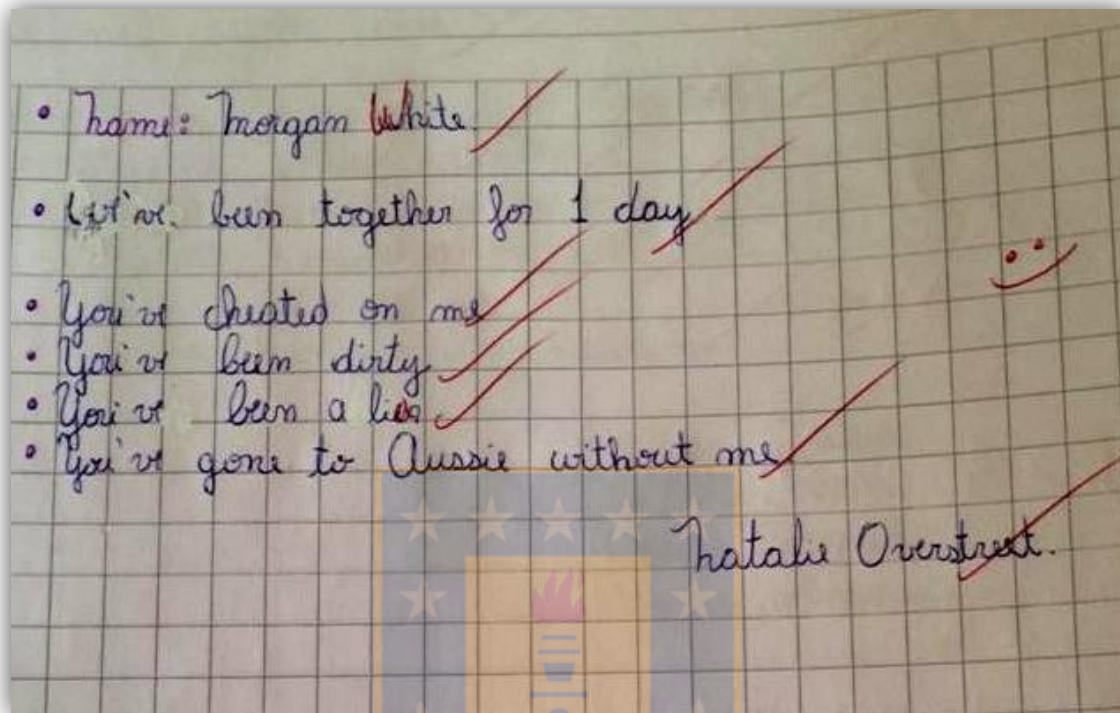 • Name: Morgan White.
• We've been together for 1 day
• You've cheated on me
• You've been dirty
• You've been a liar
• You've gone to Aussie without me
Natalie Overstreet.